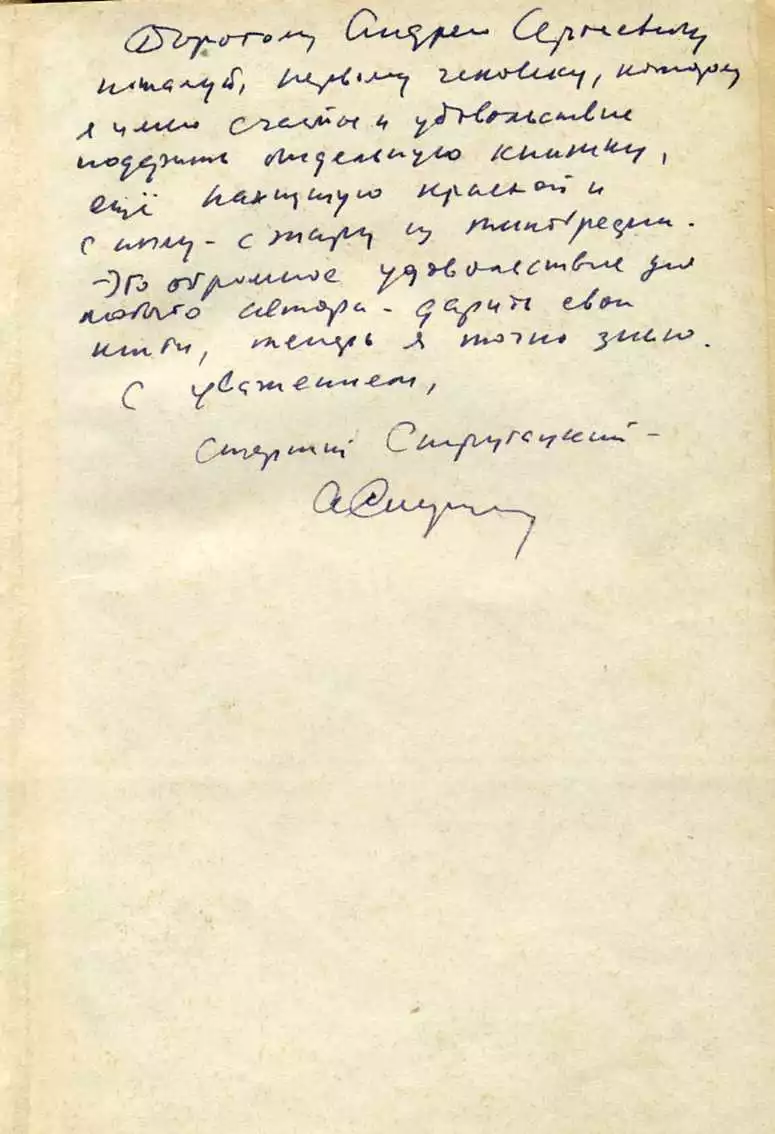 Дорогому Андрею Сергеевичу
пожалуй, первому человеку, которому
я имею счастье и удовольствие
подарить отдельную книжку,
ещё пахнущую краской и
с пылу - с жару из
Это огромное удовольствие для
любого автора - дарить свои
книги, теперь я точно знаю.
С уважением,
Стругацкий -